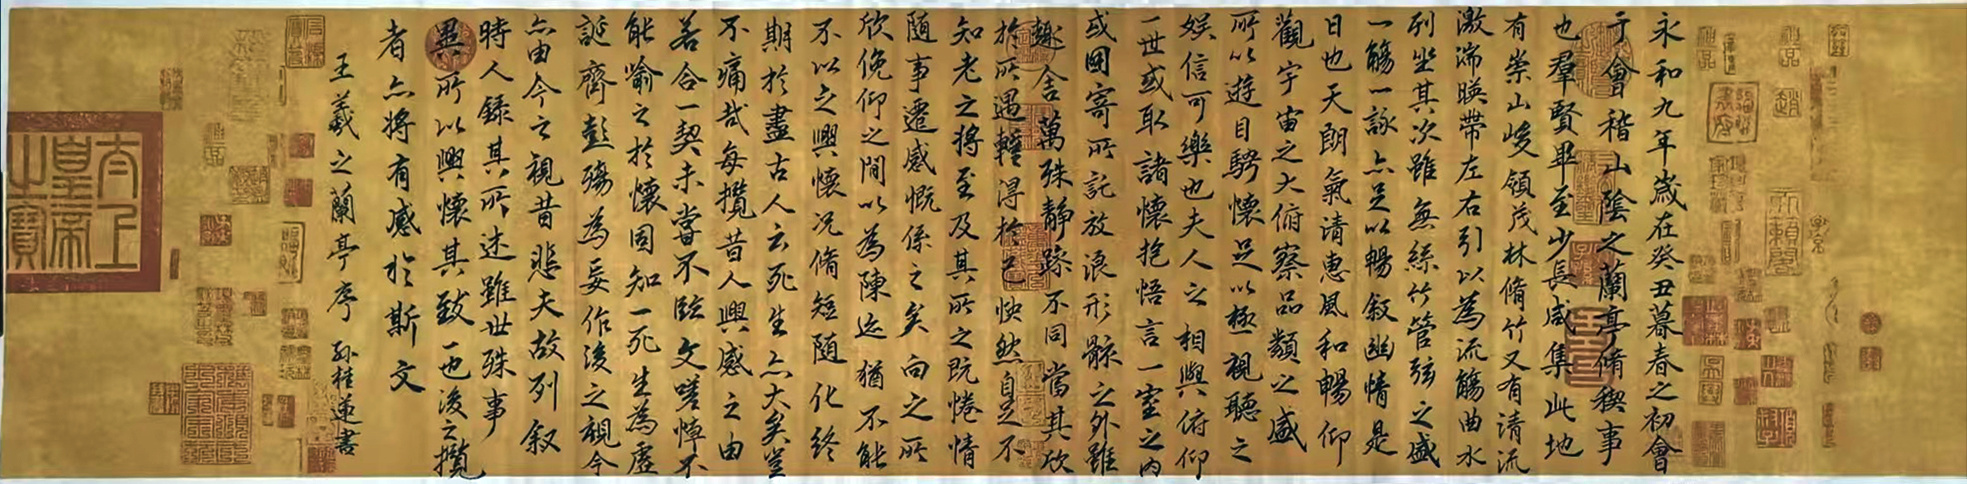 永和九年歲在癸丑暮春之初會
于會稽山陰之蘭亭脩稧事
也羣賢畢至少長咸集此地
有崇山峻領茂林脩竹又有清流
激湍暎帶左右引以為流觴曲水
列坐其次雖無絲竹管弦之盛
一觴一詠亦足以暢叙幽情是
日也天朗氣清惠風和暢仰
觀宇宙之大俯察品類之盛
所以遊目騁懷足以極視聽之
娛信可樂也夫人之相與俯仰
一世或取諸懷抱悟言一室之內
或因寄所託放浪形骸之外雖
趣舍萬殊靜躁不同當其欣
於所遇蹔得於己怏然自足不
知老之將至及其所之既惓情
隨事遷感慨係之矣向之所
欣俛仰之間以為陳迹猶不能
不以之興懷況脩短隨化終
期於盡古人云死生亦大矣豈
不痛哉每攬昔人興感之由
若合一契未嘗不臨文嗟悼不
能喻之於懷固知一死生為虛
誕齊彭殤為妄作後之視今
亦由今之視昔悲夫故列叙
時人錄其所述雖世殊事
異所以興懷其致一也後之攬
者亦將有感於斯文
王羲之蘭亭序 孫桂蓮書
太上皇帝之寶